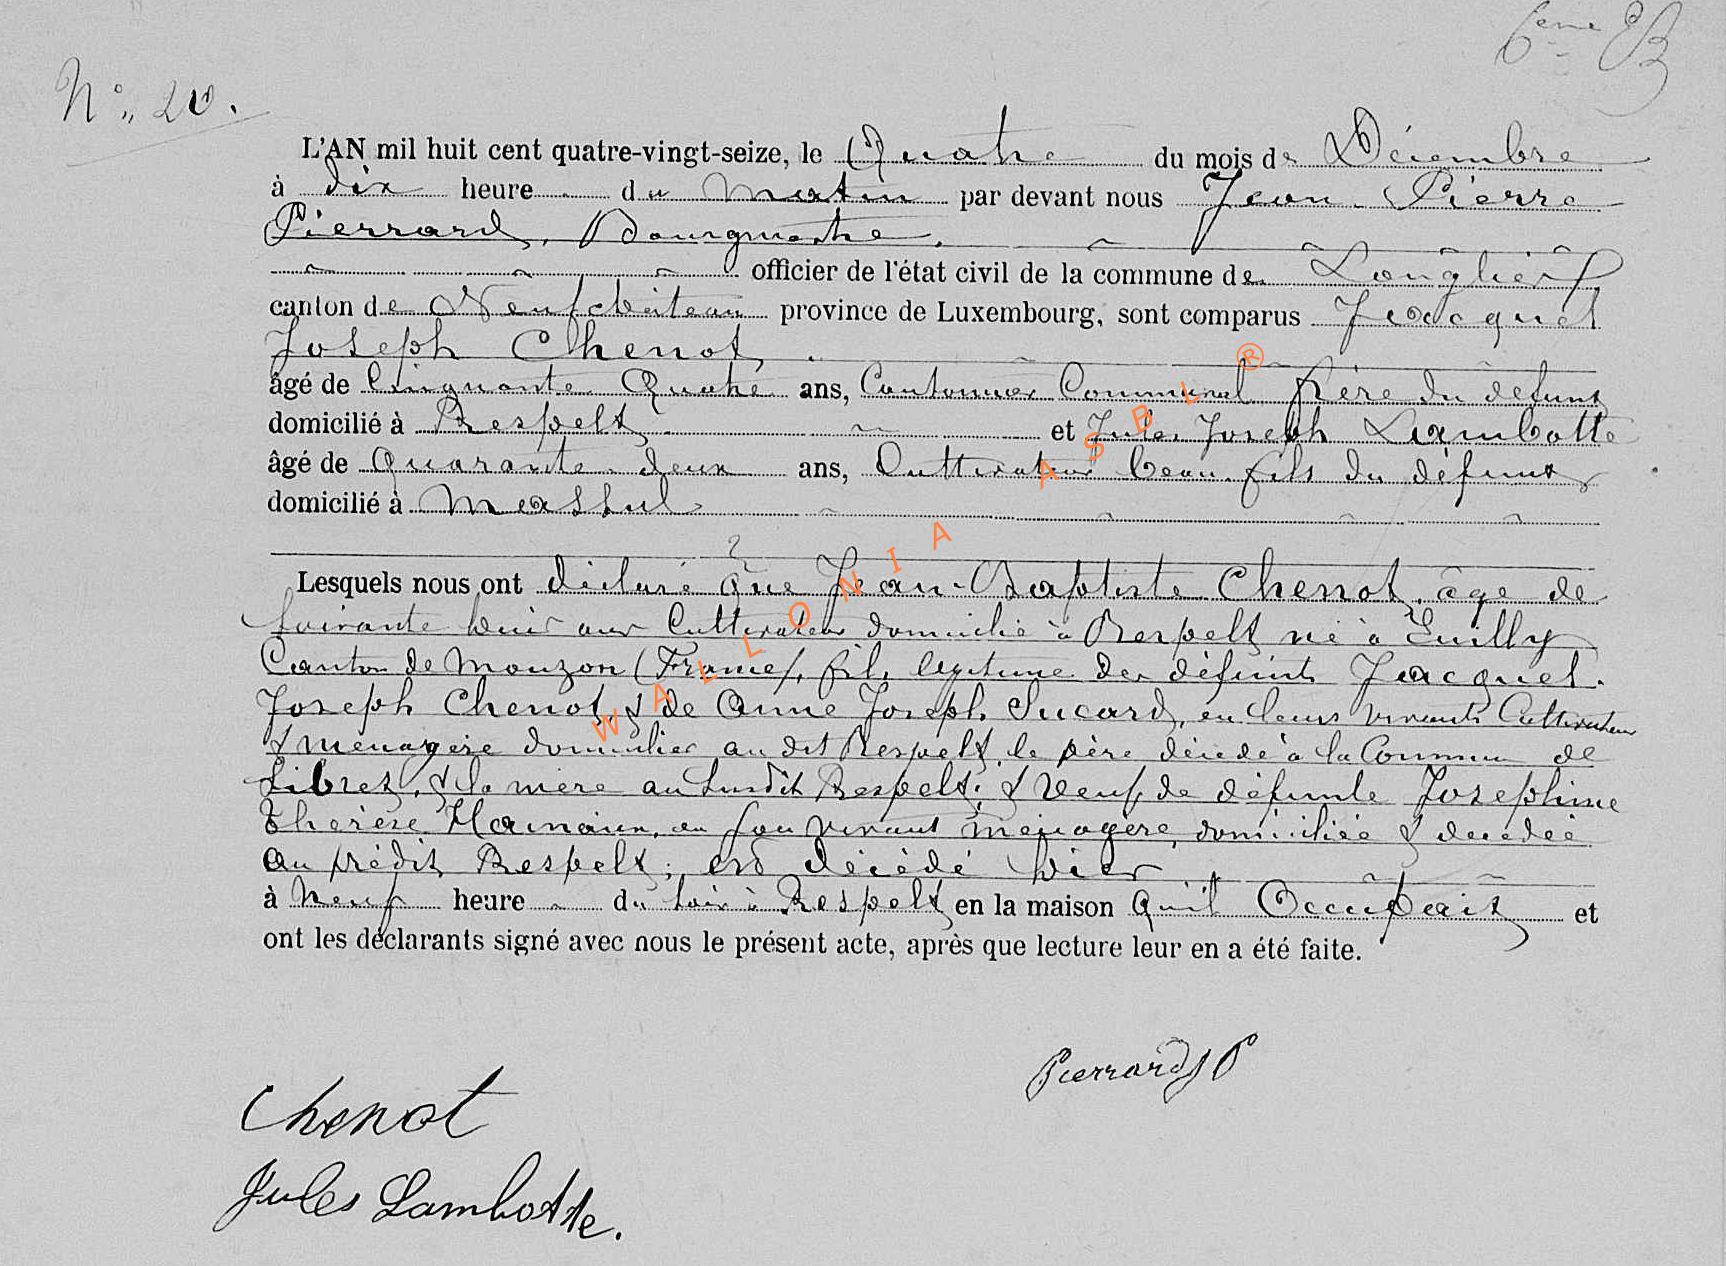 6eme
N° 20.
L'AN mil huit cent quatre-vingt-seize, le Quatre du mois de Décembre
à dix heure du matin par devant nous Jean-Pierre
Pierrard, Bourgmestre,
officier de l'état civil de la commune de Longlier
canton de Neufchâteau province de Luxembourg, sont comparus Jacquet
Joseph Chenot,
âgé de Cinquante Quatre ans, Cantonnier Communal frère du défunt
domicilié à Respelt et Jules Joseph Lambotte
âgé de Quarante-deux ans, Cultivateur beau-fils du défunt
domicilié à Massul
Lesquels nous ont déclaré que Jean-Baptiste Chenot, âgé de
soixante huit ans Cultivateur domicilié à Respelt né à Euilly
Canton de Mouzon (France), fils légitime des défunts Jacquet
Joseph Chenot, & de Anne Joseph Sucard, en leurs vivants Cultivateur
& ménagère domiciliés au dit Respelt, le père décédé à la Commune de
Libret, & la mère au susdit Respelt; & Veuf de défunte Josephine
Thérèse Hamaux, en son vivant ménagère, domiciliée & décédée
au prédit Respelt; est décédé hier
à Neuf heure du soir à Respelt en la maison qu'il Occupait et
ont les déclarants signé avec nous le présent acte, après que lecture leur en a été faite.
Pierrard JP
Chenot
Jules Lambotte.
WALLONIA ASBL ®